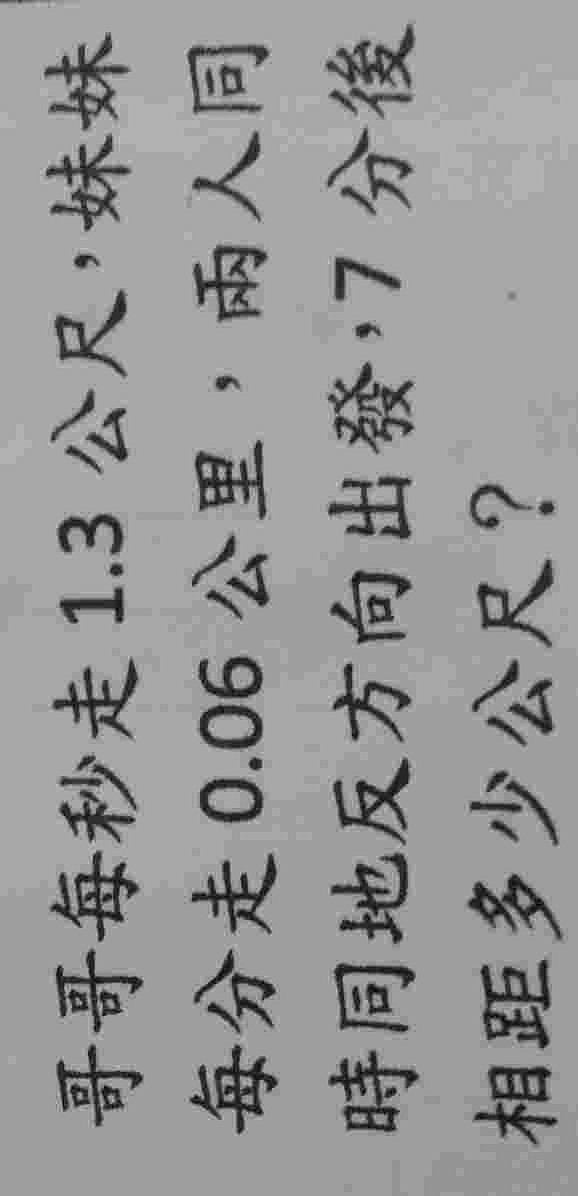 哥哥每秒走 1.3 公尺，妹妹
每分走 0.06 公里，兩人同
時同地反方向出發，7 分後
相距多少公尺？